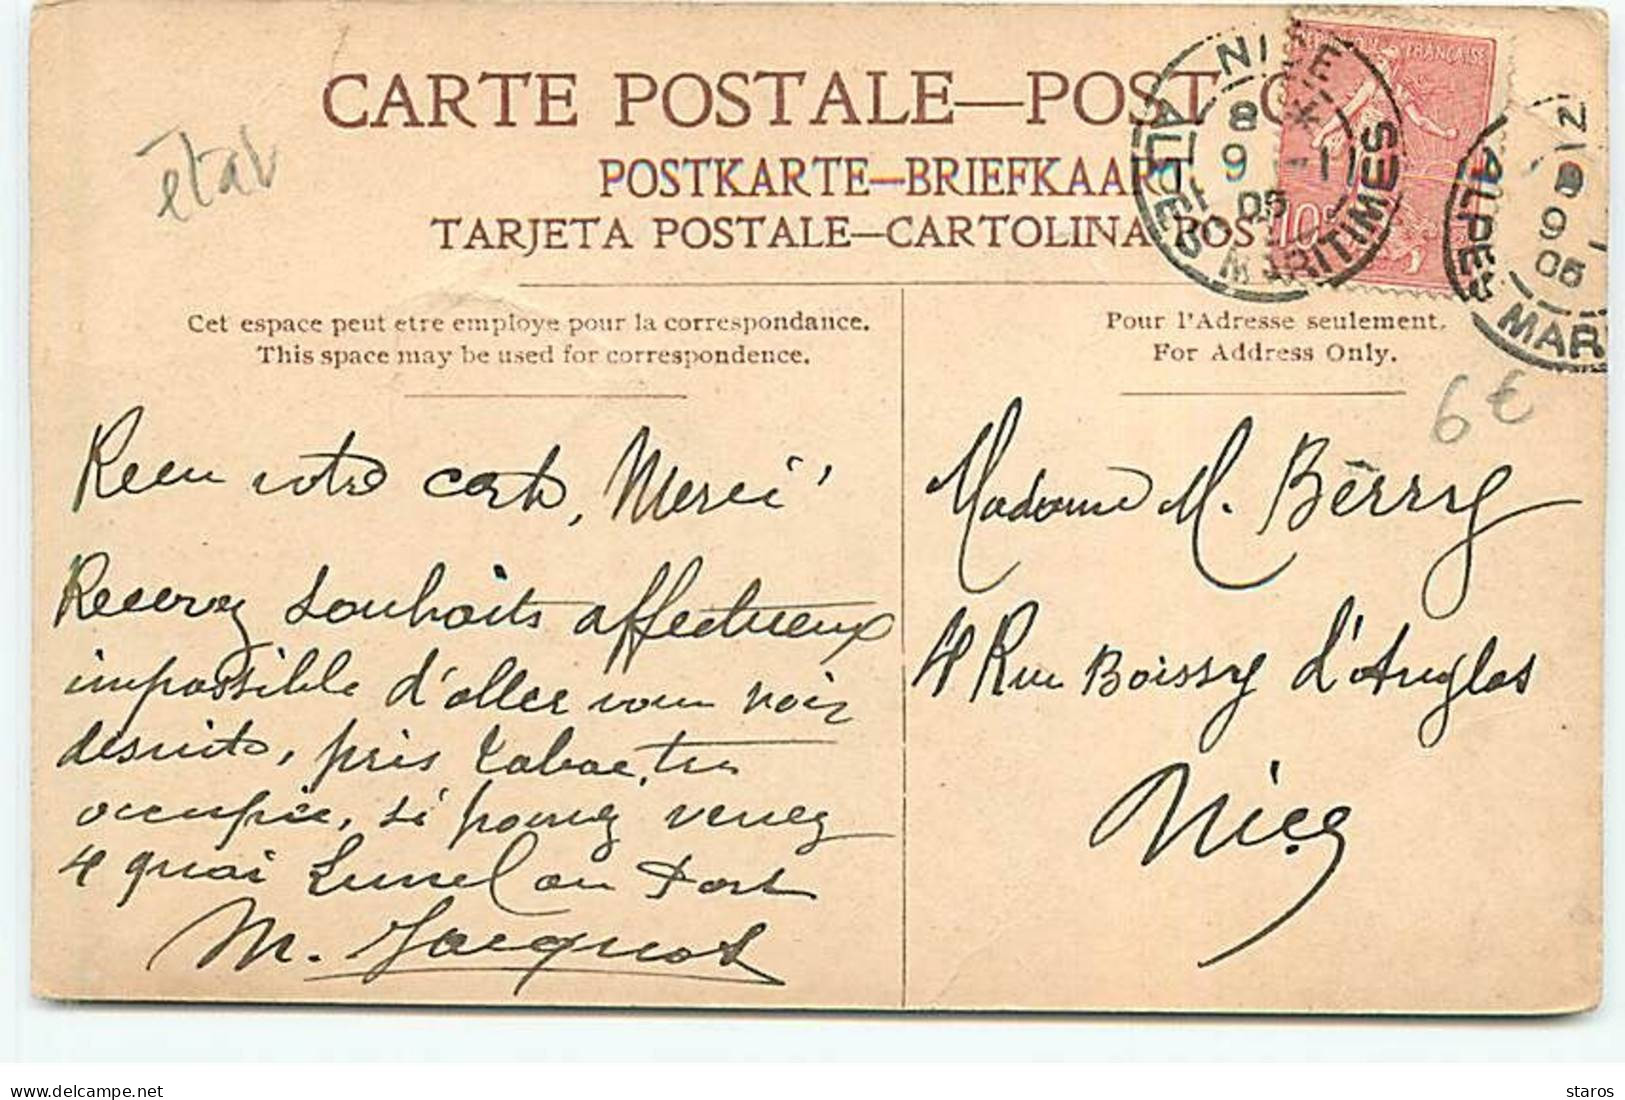 CARTE POSTALE—POST C
POSTKARTE—BRIEFKAART
TARJETA POSTALE—CARTOLINA POST
état
NICE
8 *
9 -1
05
ALPES MARITIMES
RÉPUBLIQUE FRANÇAISE
10c
12
8
9 1
05
ALPES MARI
Cet espace peut etre employe pour la correspondance.
This space may be used for correspondence.
Pour l'Adresse seulement.
For Address Only.
6€
Reçu votre carte, Merci!
Recevez souhaits affectueux
impossible d'aller vous voir
desuite, pris tabac, très
occupée, si pouvez venez
4 quai Lunel au Port
M. Jacquot
Madame M. Bérry
4 Rue Boissy d'Anglas
Nice
staros